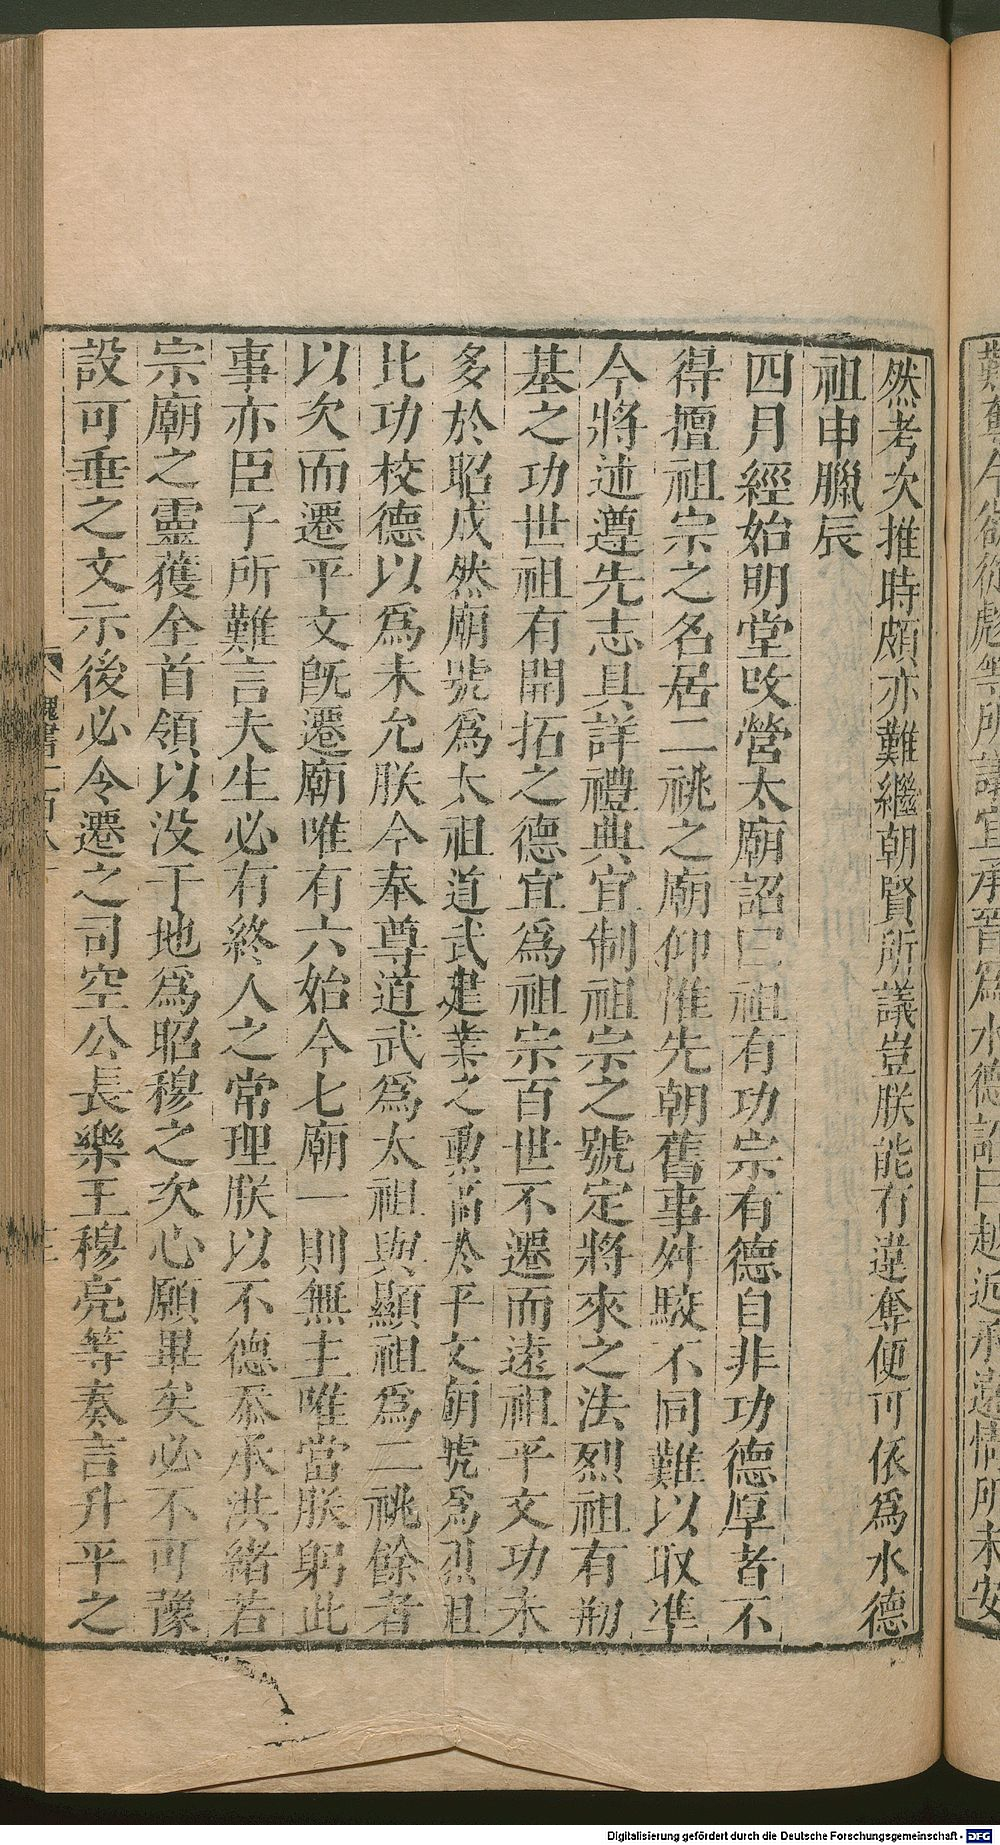 難奪今欲從彪等所議宜承晉爲水德詔曰越近承遠情所未安
然考次推時頗亦難繼朝賢所議豈朕能有違奪便可依爲水德
祖申臘辰
四月經始明堂改營太廟詔曰祖有功宗有德自非功德厚者不
得擅祖宗之名居二祧之廟仰惟先朝舊事舛駮不同難以取準
今將述遵先志具詳禮典宜制祖宗之號定將來之法烈祖有刱
基之功世祖有開拓之德宜爲祖宗百世不遷而遠祖平文功未
多於昭成然廟號爲太祖道武建業之勲高於平文廟號爲烈祖
比功校德以爲未允朕今奉尊道武爲太祖與顯祖爲二祧餘者
以次而遷平文旣遷廟唯有六始今七廟一則無主唯當朕躬此
事亦臣子所難言夫生必有終人之常理朕以不德忝承洪緒若
宗廟之靈獲全首領以没于地爲昭穆之次心願畢矣必不可豫
設可垂之文示後必令遷之司空公長樂王穆亮等奏言升平之
魏書一百八
Digitalisierung gefördert durch die Deutsche Forschungsgemeinschaft - DFG